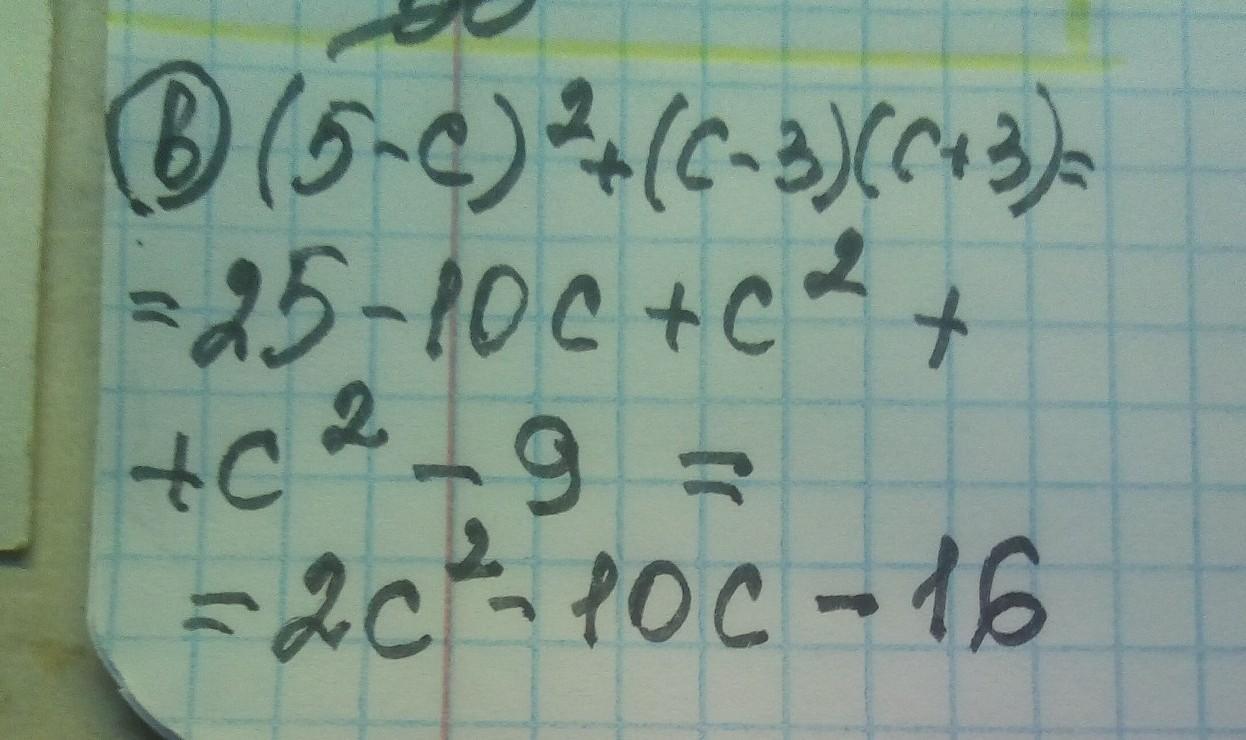 в) (5-c)²+(c-3)(c+3)=
=25-10c+c²+
+c²-9=
=2c²-10c-16